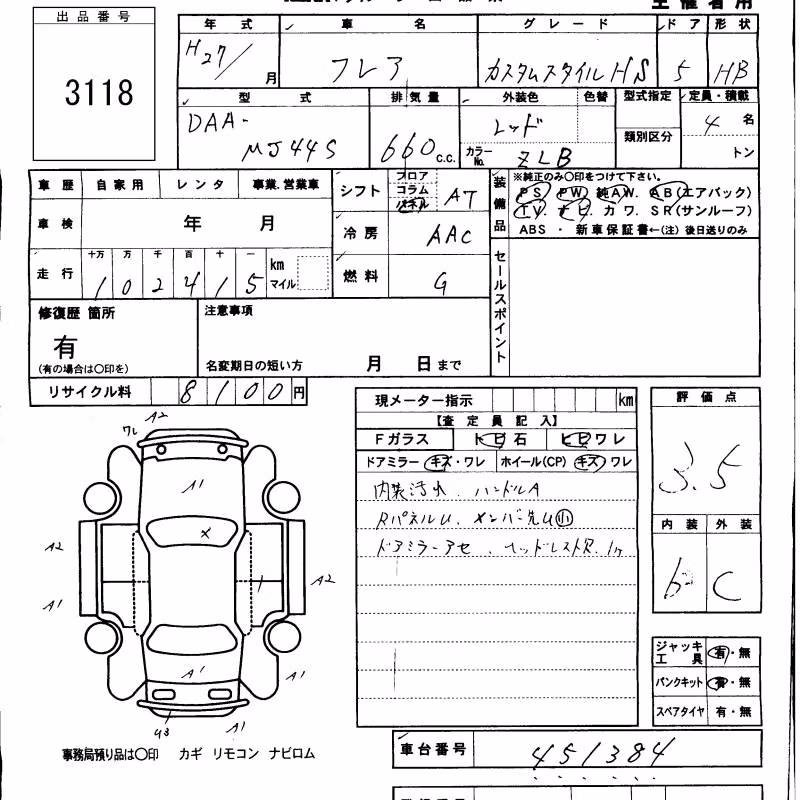 主催者用
出品番号
3118
年式 車名 グレード ドア 形状
H27/ 月 フレア カスタムスタイルHS 5 HB
型式 排気量 外装色 色替 型式指定 定員・積載
DAA-
MJ44S 660 c.c. レッド 類別区分 4 名
カラーNo. ZLB トン
車歴 自家用 レンタ 事業.営業車
シフト フロア コラム パネル AT
装備品 ※純正のみ〇印をつけて下さい。
PS PW 純AW. AB(エアバック)
TV. ナビ. カワ. SR(サンルーフ)
ABS ・ 新車保証書←(注)後日送りのみ
車検 年 月
冷房 AAC
走行 十万 万 千 百 十 一 km マイル
102415
燃料 G
セールスポイント
修復歴 箇所
有
(有の場合は〇印を)
注意事項
名変期日の短い方 月 日まで
リサイクル料 8100円
現メーター指示 km
【査定員記入】
Fガラス トビ石 ヒビワレ
ドアミラー キズ・ワレ ホイール(CP) キズ ワレ
内装汚れ . ハンドルA
RパネルU . メンバー先U小
ドアミラーアセ . ヘッドレスト欠. 1ヶ
評価点
3.5
内装 外装
b C
ジャッキ工具 有・無
パンクキット 有・無
スペアタイヤ 有・無
A2
ワレ
A1
×
A2
A1
A2
A1
A1
U3
A1
事務局預り品は〇印 カギ リモコン ナビロム
車台番号 451384